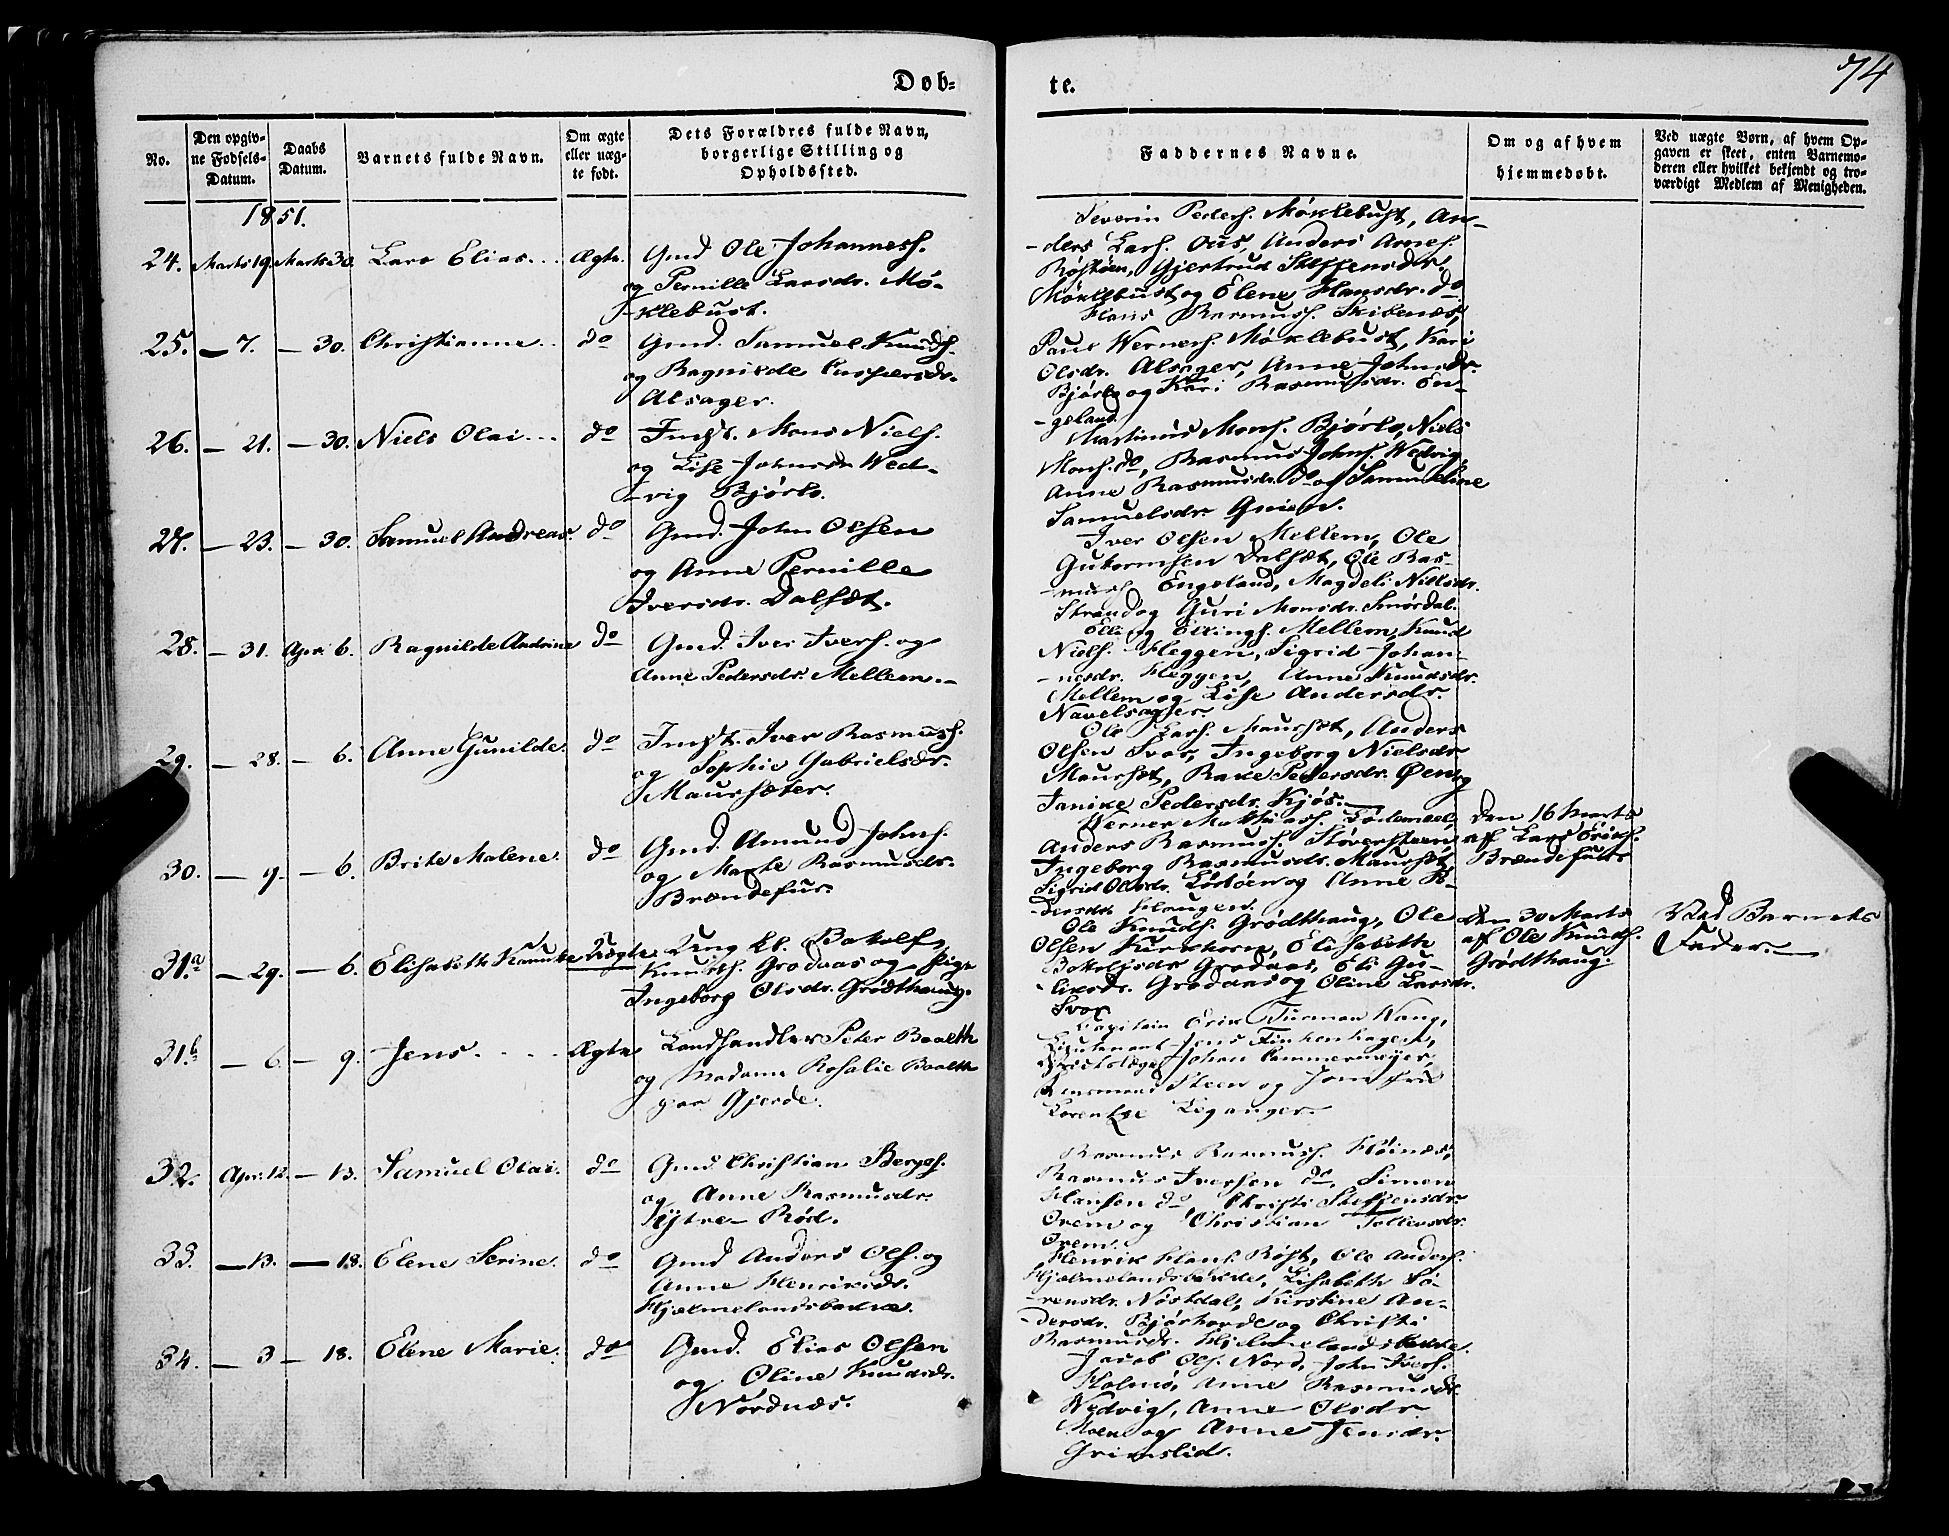 74
Døb-
te.
No.
Den opgiv-
ne Fødsels-
Datum.
Daabs
Datum.
Barnets fulde Navn.
Om ægte
eller uæg-
te født.
Dets Forældres fulde Navn,
borgerlige Stilling og
Opholdssted.
Faddernes Navne.
Om og af hvem
hjemmedøbt.
Ved uægte Børn, af hvem Op-
gaven er skeet, enten Barnemo-
deren eller hvilket bekjendt og tro-
værdigt Medlem af Menigheden.
1851.
24. Marts 19. Marts 30. Lars Elias... Ægte.
Gmd Ole Johanness.
og Pernille Larsdr. Mø-
klebust.
Severin Peders. Møklebust, An-
ders Lars. Aus, Anders Arnes.
Røstøen, Gjertrud Steffensdr.
Møklebust og Elene Hansdr. do.
25. — 7. — 30. Christianne... do
Gmd. Samuel Knuds.
og Ragnilde Caspersdr.
Alsager.
Hans Rasmuss. Skibenæs,
Paul Werners. Møklebust, Kari
Olsdr. Alsager, Anne Johnsdr.
Bjørlo og Kari Rasmusdr. En-
geland.
26. — 21. — 30. Niels Olai... do
Indst. Mons Niels.
og Lise Johnsdr. Wed-
vig Bjørlo.
Martinus Mons. Bjørlo, Niels
Mons. do, Rasmus Johns. Wedvig,
Anne Rasmusdr. do og Samueline
Samuelsdr.
27. — 23. — 30. Samuel Andreas. do
Gmd. John Olsen
og Anne Pernille
Iversdr. Dalsæt.
Iver Olsen Mellem, Ole
Guttormsen Dalsæt, Ole Ras-
muss. Engeland, Magdeli Nielsdr.
Strand og Guri Monsdr. Smørdal.
28. — 31. Apr. 6. Ragnilde Andrine do
Gmd. Iver Ivers. og
Anne Pedersdr. Mellem.—
Ellings. Mellem, Knud
Niels. Heggen, Sigrid Johan-
nesdr. Heggen, Anne Knudsdr.
Mellem og Lise Andersdr.
Navelsager.
29. — 28. — 6. Anne Gunilde. do
Indst. Iver Rasmuss.
og Sophie Gabrielsdr.
Maursæter.
Ole Lars. Maursæt, Anders
Olsen Svor, Ingeborg Nielsdr.
Maursæt, Pedersdr. Øen og
Janike Pedersdr. Kjøs.—
30. — 9. — 6. Brite Malene. do
Gmd. Amund Johns.
og Marte Rasmusdr.
Brændefur.
Werner Mathias.
Anders Rasmuss. Støversteen,
Ingeborg Rasmusdr. Maursæt,
Sigrid Olsdr. og Anne Pe-
dersdr. Haugen.
Den 16 Marts
af Lars Eriks.
Brændefur.
31.a — 29. — 6. Elisabeth Knudte Uægte.
Ung. kl. Botolf
Knuds. Grodaas og Pige
Ingeborg Olsdr. Grødthaug.
Ole Knuds. Grødthaug, Ole
Olsen Kirkhorn, Elisabeth
Botolfsdr. Grodaas, Eli Gu-
liksdr. Grodaas og Oline Larsdr.
Svor
Den 30 Marts
af Ole Knuds.
Grødthaug.
Ved Barnets
Fader.—
31.b — 6. — 9. Jens.... Ægte
Landhandler Peter Baalth
og Madame Rosalie Baalth
paa Gjerde.
Capitain Erik Tuxman Wang,
Lieutenant Jens Finkenhagen,
Districtslæge Johan Cammermeyer,
Steen og
Lorentze Leganger.
32. Apr. 12. — 13. Samuel Olai. do
Gmd Christian Bergs.
og Anne Rasmusdr.
Ytre-Rød.
Rasmus Rasmuss. Høinæs,
Rasmus Iversen do, Simon
Hansen do Christi Steffensdr.
Orem og Christian Tollevsdr.
Orem.
33. — 13. — 18. Elene Serine. do
Gmd Anders Ols. og
Anne Henriksdr.
Hjelmelandsbakke.
Henrik Hans. Røst, Ole Anders.
Hjelmelandsbakke, Lisabeth Sø-
rensdr. Nøstdal, Kirstine An-
dersdr. og Christi
Rasmusdr. Hjelmelandsbakke.
34. — 3 — 18. Elene Marie. do
Gmd. Elias Olsen
og Oline Knudsdr.
Nordnæs.
Jacob Ols. Nord, John Ivers.
Holmø, Anne Rasmusdr.
Wedvig, Anne Olsdr.
Moen og Anne Jensdr.
Grimslid.